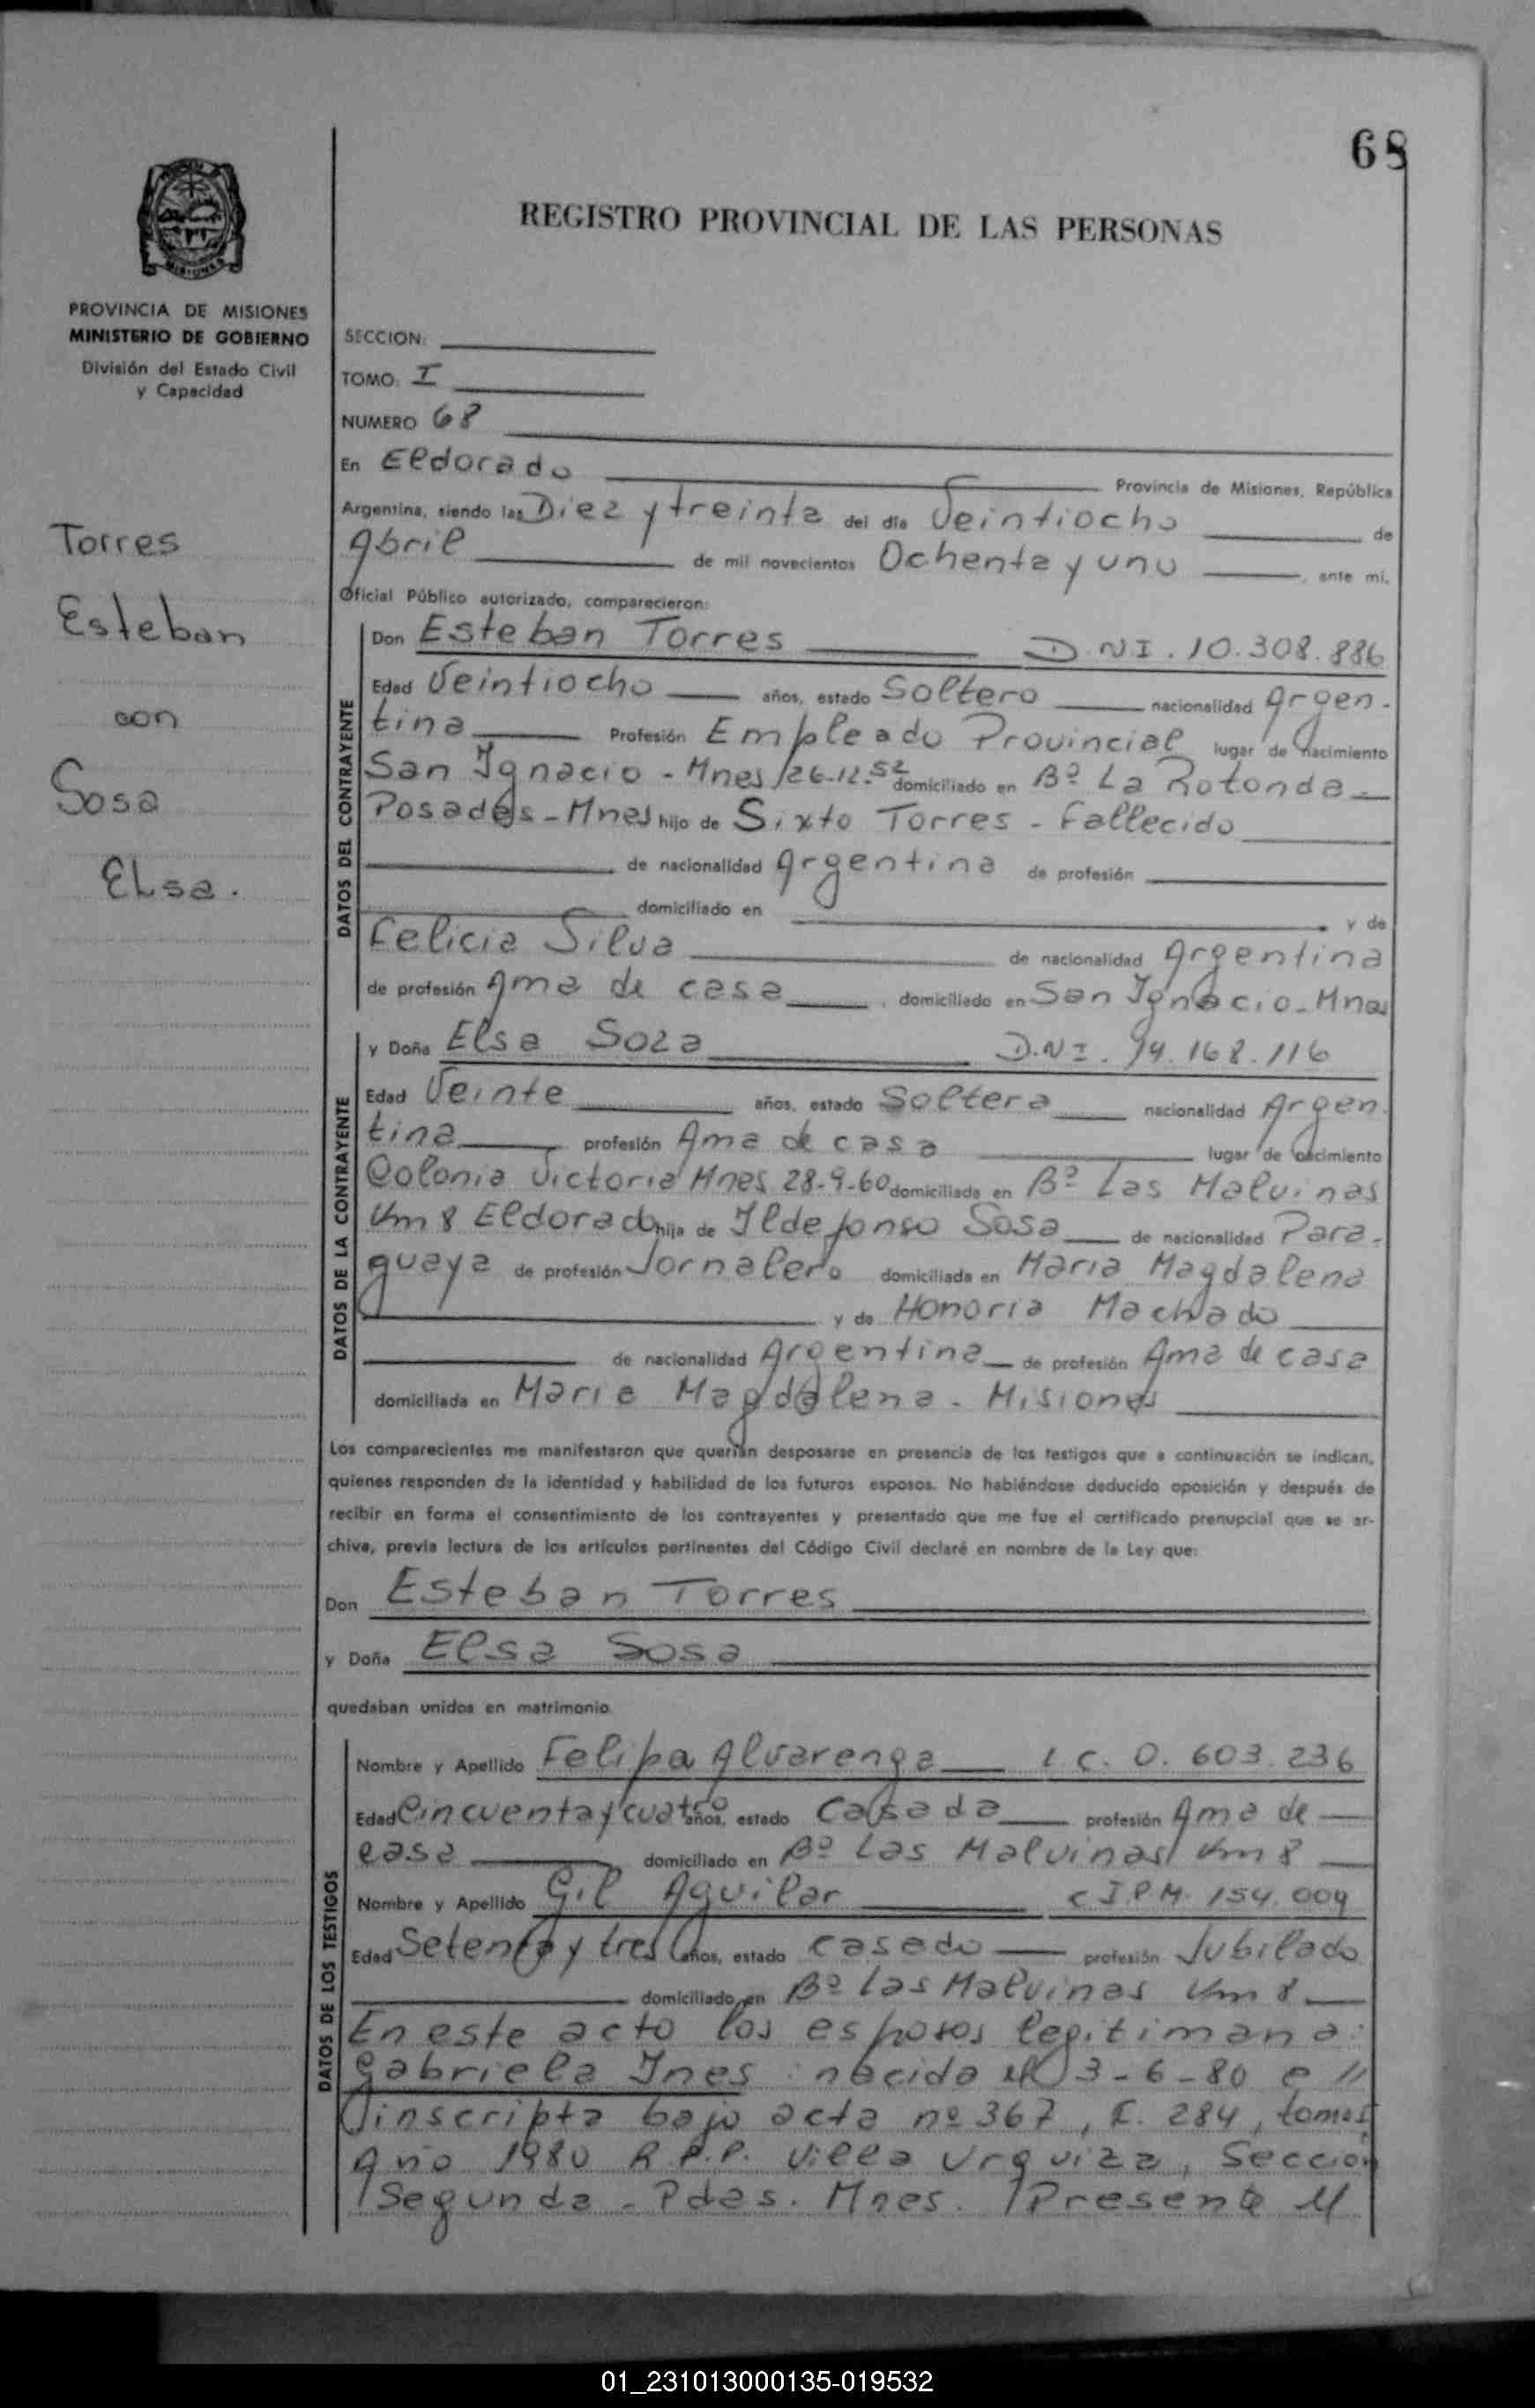 68
REGISTRO PROVINCIAL DE LAS PERSONAS
MISIONES
PROVINCIA DE MISIONES
MINISTERIO DE GOBIERNO
División del Estado Civil
y Capacidad
Torres
Esteban
con
Sosa
Elsa.
SECCION:
TOMO: I
NUMERO 68
En Eldorado Provincia de Misiones, República
Argentina, siendo las Diez y treinta del día Veintiocho de
Abril de mil novecientos Ochenta y uno, ante mi,
Oficial Público autorizado, comparecieron:
DATOS DEL CONTRAYENTE
Don Esteban Torres D.N.I. 10.308.886
Edad Veintiocho años, estado Soltero nacionalidad Argen-
tina Profesión Empleado Provincial lugar de nacimiento
San Ignacio - Mnes/26-12-52 domiciliado en Bº La Rotonda-
Posadas - Mnes hijo de Sixto Torres - Fallecido
de nacionalidad Argentina de profesión
domiciliado en y de
Felicia Silva de nacionalidad Argentina
de profesión Ama de casa, domiciliado en San Ignacio - Mnes
DATOS DE LA CONTRAYENTE
y Doña Elsa Soza D.N.I. 14.168.116
Edad Veinte años, estado Soltera nacionalidad Argen-
tina profesión Ama de casa lugar de nacimiento
Colonia Victoria Mnes 28-9-60 domiciliada en Bº Las Malvinas
Km 8 Eldorado hija de Ildefonso Sosa de nacionalidad Para-
guaya de profesión Jornalero domiciliada en Maria Magdalena
y de Honoria Machado
de nacionalidad Argentina de profesión Ama de casa
domiciliada en Maria Magdalena - Misiones
Los comparecientes me manifestaron que querían desposarse en presencia de los testigos que a continuación se indican,
quienes responden de la identidad y habilidad de los futuros esposos. No habiéndose deducido oposición y después de
recibir en forma el consentimiento de los contrayentes y presentado que me fue el certificado prenupcial que se ar-
chiva, previa lectura de los artículos pertinentes del Código Civil declaré en nombre de la Ley que:
Don Esteban Torres
y Doña Elsa Sosa
quedaban unidos en matrimonio.
DATOS DE LOS TESTIGOS
Nombre y Apellido Felipa Alvarenga L.C. 0.603.236
Edad Cincuenta y cuatro años, estado Casada profesión Ama de
casa domiciliado en Bº Las Malvinas Km 8
Nombre y Apellido Gil Aguilar C.I.P.M. 154.004
Edad Setenta y tres años, estado casado profesión Jubilado
domiciliado en Bº Las Malvinas Km 8
En este acto los esposos legitiman a:
Gabriela Ines: nacida el 3-6-80 e //
inscripta bajo acta nº 367, F. 284, tomo I
Año 1980 R.P.P. Villa Urquiza, Sección
Segunda - Pdas. Mnes. Presente //
01_231013000135-019532